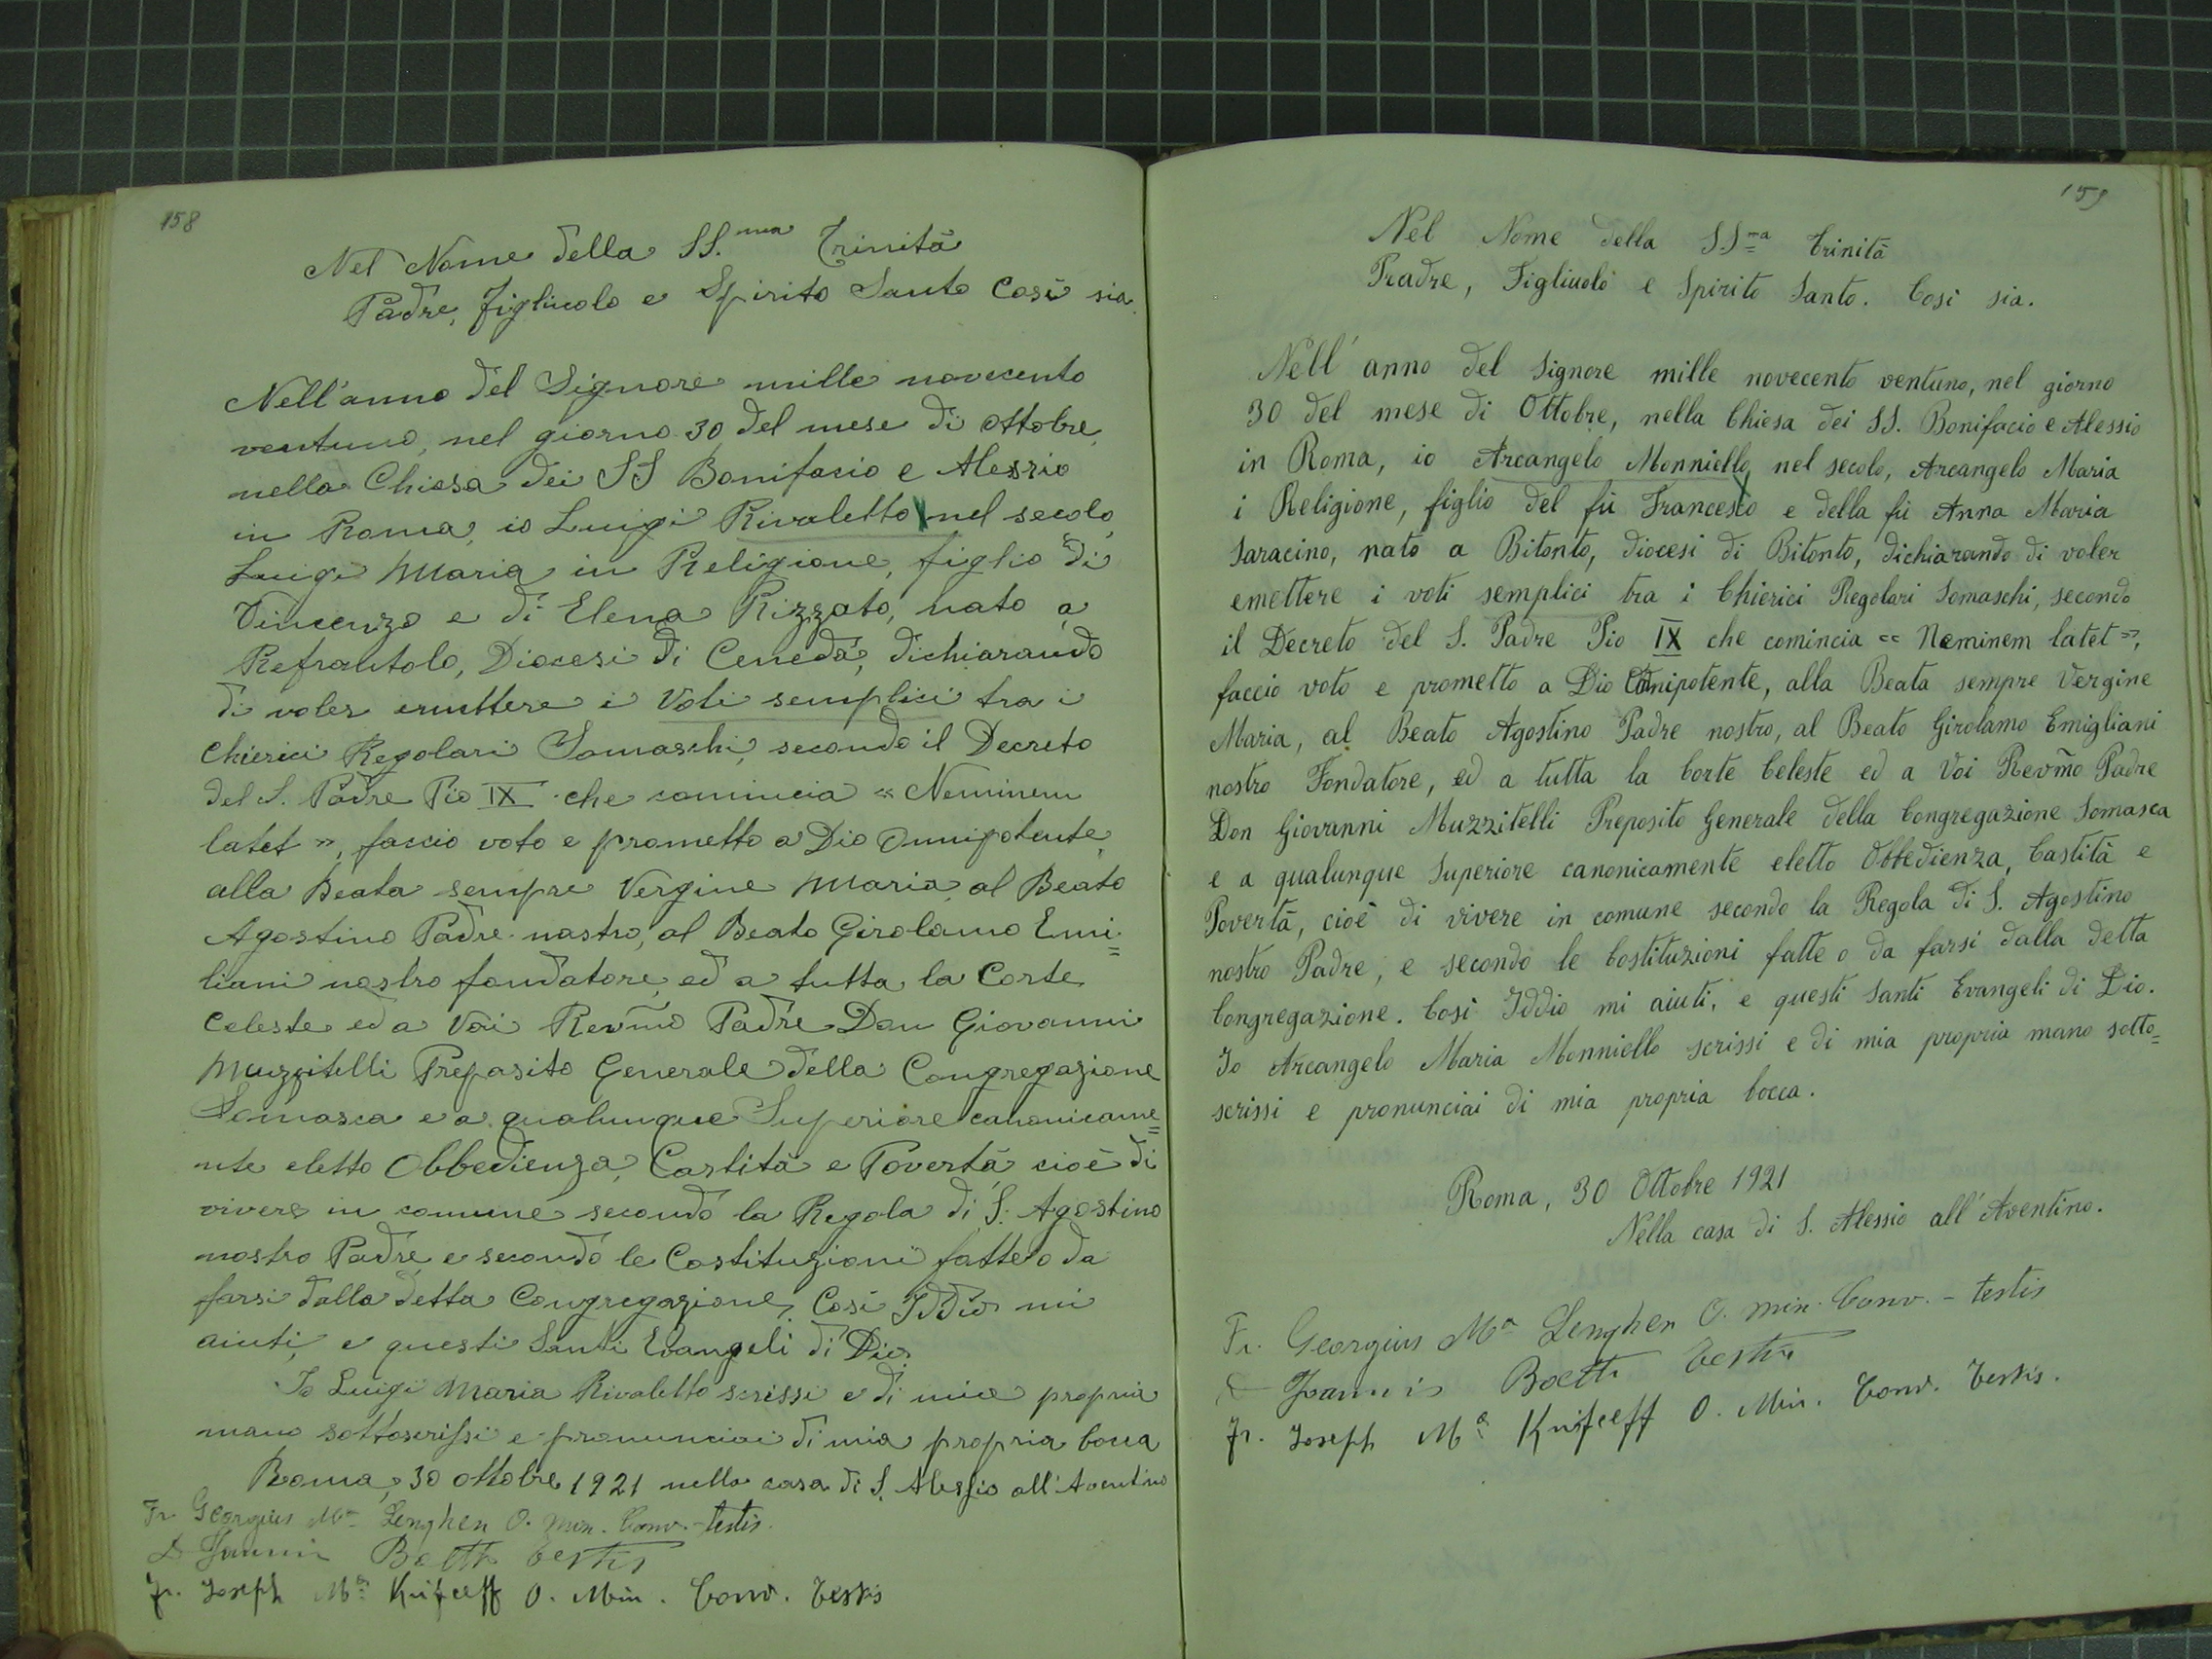 158
Nel Nome della SS.ma Trinità
Padre, Figliuolo e Spirito Santo Così sia.
Nell'anno del Signore mille novecento
ventuno, nel giorno 30 del mese di ottobre,
nella Chiesa dei SS Bonifacio e Alessio
in Roma, io Luigi Rivaletto nel secolo,
Luigi Maria in Religione, figlio di
Vincenzo e di Elena Rizzato, nato a
Refrontolo, Diocesi di Ceneda, dichiarando
di voler emettere i Voti semplici tra i
Chierici Regolari Somaschi, secondo il Decreto
del S. Padre Pio IX che comincia « Neminem
latet », faccio voto e prometto a Dio Onnipotente,
alla Beata sempre Vergine Maria, al Beato
Agostino Padre nostro, al Beato Girolamo Emi=
liani nostro fondatore, ed a tutta la Corte
Celeste ed a Voi Reṽmo Padre Don Giovanni
Muzzitelli Preposito Generale della Congregazione
Somasca e a qualunque Superiore canonicame=
nte eletto Obbedienza, Castità e Povertà, cioè di
vivere in comune secondo la Regola di S. Agostino
nostro Padre e secondo le Costituzioni fatte o da
farsi dalla detta Congregazione. Così Iddio mi
aiuti, e questi Santi Evangeli di Dio
Io Luigi Maria Rivaletto scrissi e di mia propria
mano sottoscrissi e pronunciai di mia propria bocca
Roma, 30 ottobre 1921 nella casa di S. Alessio all'Aventino
Fr. Georgius Ma Lenghen O. Min. Conv. - testis.
Boetti testis
Fr. Joseph Ma Knifceff O. Min. Conv. Testis
159
Nel Nome della SSma Trinità
Pradre, Figliuolo e Spirito Santo. Così sia.
Nell'anno del Signore mille novecento ventuno, nel giorno
30 del mese di Ottobre, nella Chiesa dei SS. Bonifacio e Alessio
in Roma, io Arcangelo Monniello nel secolo, Arcangelo Maria
i Religione, figlio del fù Francesco e della fù Anna Maria
Saracino, nato a Bitonto, diocesi di Bitonto, dichiarando di voler
emettere i voti semplici tra i Chierici Regolari Somaschi, secondo
il Decreto del S. Padre Pio IX che comincia « Neminem latet »,
faccio voto e prometto a Dio Onnipotente, alla Beata sempre Vergine
Maria, al Beato Agostino Padre nostro, al Beato Girolamo Emigliani
nostro Fondatore, ed a tutta la Corte Celeste ed a Voi Reṽmo Padre
Don Giovanni Muzzitelli Preposito Generale della Congregazione Somasca
e a qualunque Superiore canonicamente eletto Obbedienza, Castità e
Povertà, cioè di vivere in comune secondo la Regola di S. Agostino
nostro Padre, e secondo le Costituzioni fatte o da farsi dalla detta
Congregazione. Così Iddio mi aiuti, e questi Santi Evangeli di Dio.
Io Arcangelo Maria Monniello scrissi e di mia propria mano sotto=
scrissi e pronunciai di mia propria bocca.
Roma, 30 Ottobre 1921
Nella casa di S. Alessio all'Aventino.
Fr. Georgius Ma Lenghen O. Min. Conv. - testis
Joannis Boetti testis
Fr. Joseph Ma Knifceff O. Min. Conv. Testis.